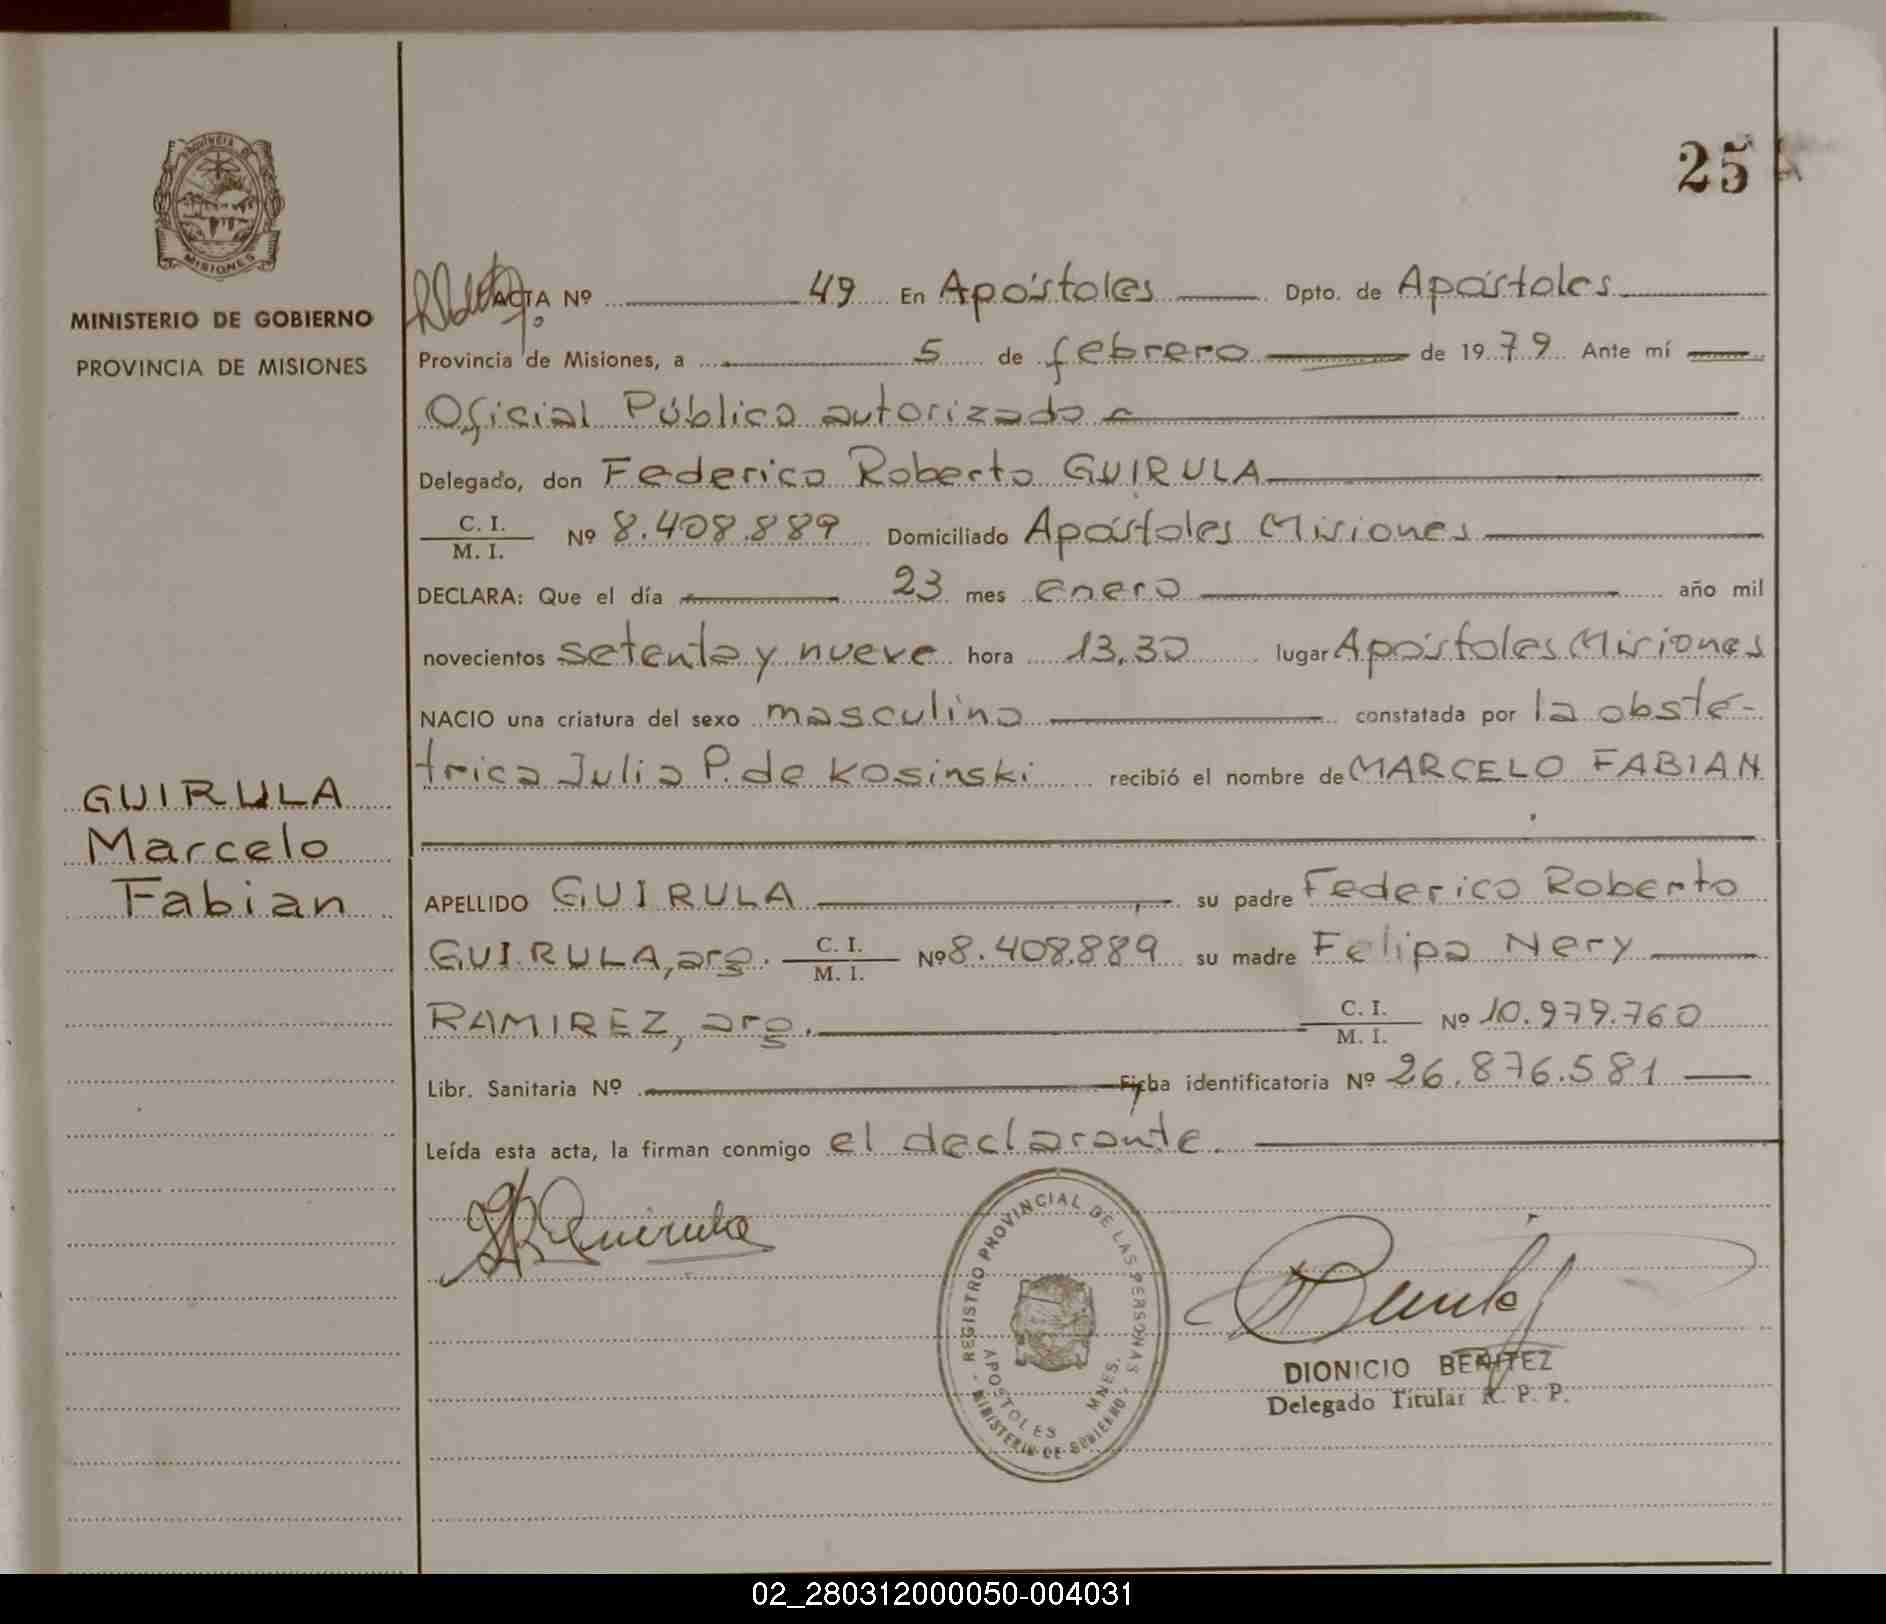 25
PROVINCIA DE
MISIONES
MINISTERIO DE GOBIERNO
PROVINCIA DE MISIONES
ACTA Nº 49 En Apóstoles Dpto. de Apóstoles
Provincia de Misiones, a 5 de febrero de 1979 Ante mí
Oficial Público autorizado
Delegado, don Federico Roberto GUIRULA
C. I.
M. I. Nº 8.408.889 Domiciliado Apóstoles Misiones
DECLARA: Que el día 23 mes enero año mil
novecientos setenta y nueve hora 13,30 lugar Apóstoles Misiones
NACIO una criatura del sexo masculino constatada por la obsté-
trica Julia P. de Kosinski recibió el nombre de MARCELO FABIAN
GUIRULA
Marcelo
Fabian
APELLIDO GUIRULA su padre Federico Roberto
GUIRULA, arg. C. I.
M. I. Nº 8.408.889 su madre Felipa Nery
RAMIREZ, arg. C. I.
M. I. Nº 10.979.760
Libr. Sanitaria Nº Ficha identificatoria Nº 26.876.581
Leída esta acta, la firman conmigo el declarante.
REGISTRO PROVINCIAL DE LAS PERSONAS
APOSTOLES MNES.
MINISTERIO DE GOBIERNO
DIONICIO BENITEZ
Delegado Titular R. P. P.
02_280312000050-004031